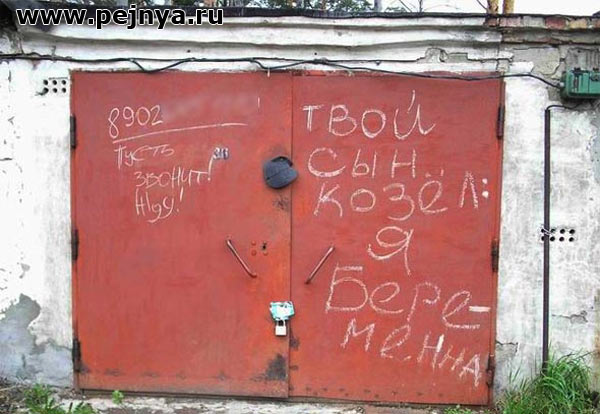 www.pejnya.ru
8902
Пусть
звонит!
Жду!
ТВОЙ
СЫН
КОЗЁЛ:
Я
Бере-
менна